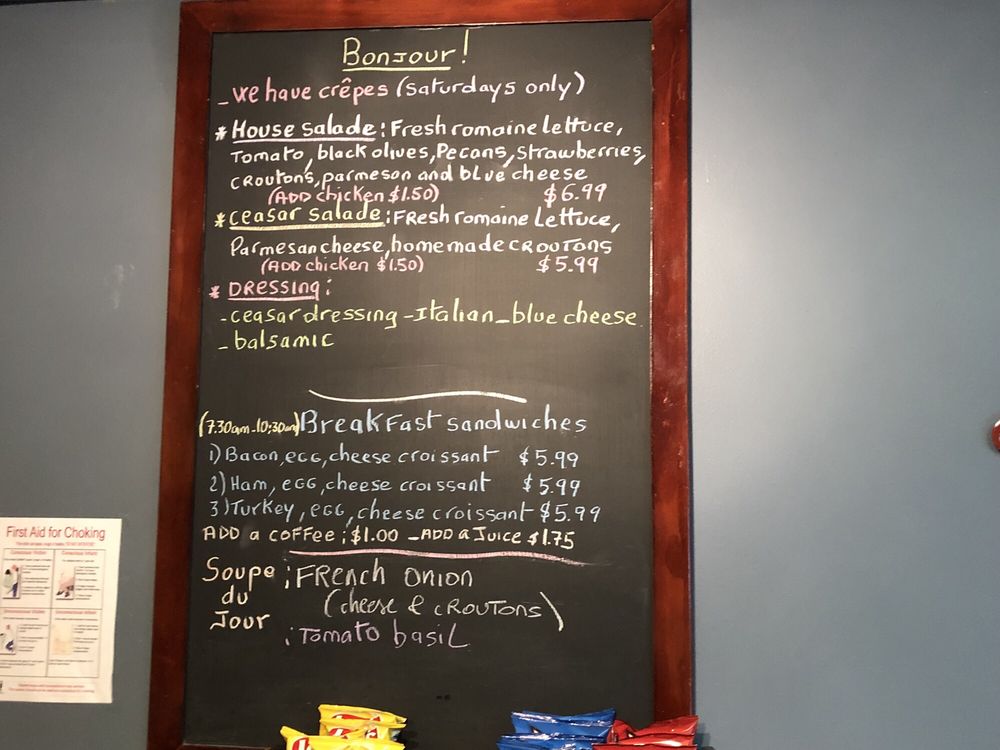 Bonjour!
- We have crêpes (Saturdays only)
* House salade: Fresh romaine lettuce,
Tomato, black olives, Pecans, strawberries,
croutons, parmeson and blue cheese
(ADD chicken $1.50) $6.99
* ceasar salade: Fresh romaine Lettuce,
Parmesan cheese, homemade croutons
(ADD chicken $1.50) $5.99
* DRESSING:
- ceasar dressing - Italian - blue cheese
- balsamic
(7.30am - 10:30am) Breakfast sandwiches
1) Bacon, egg, cheese croissant $5.99
2) Ham, egg, cheese croissant $5.99
3) Turkey, egg, cheese croissant $5.99
ADD a coffee: $1.00 - ADD a Juice $1.75
Soupe du Jour : French onion
(cheese & croutons)
: Tomato basil
First Aid for Choking
Conscious Victim
Conscious Infant